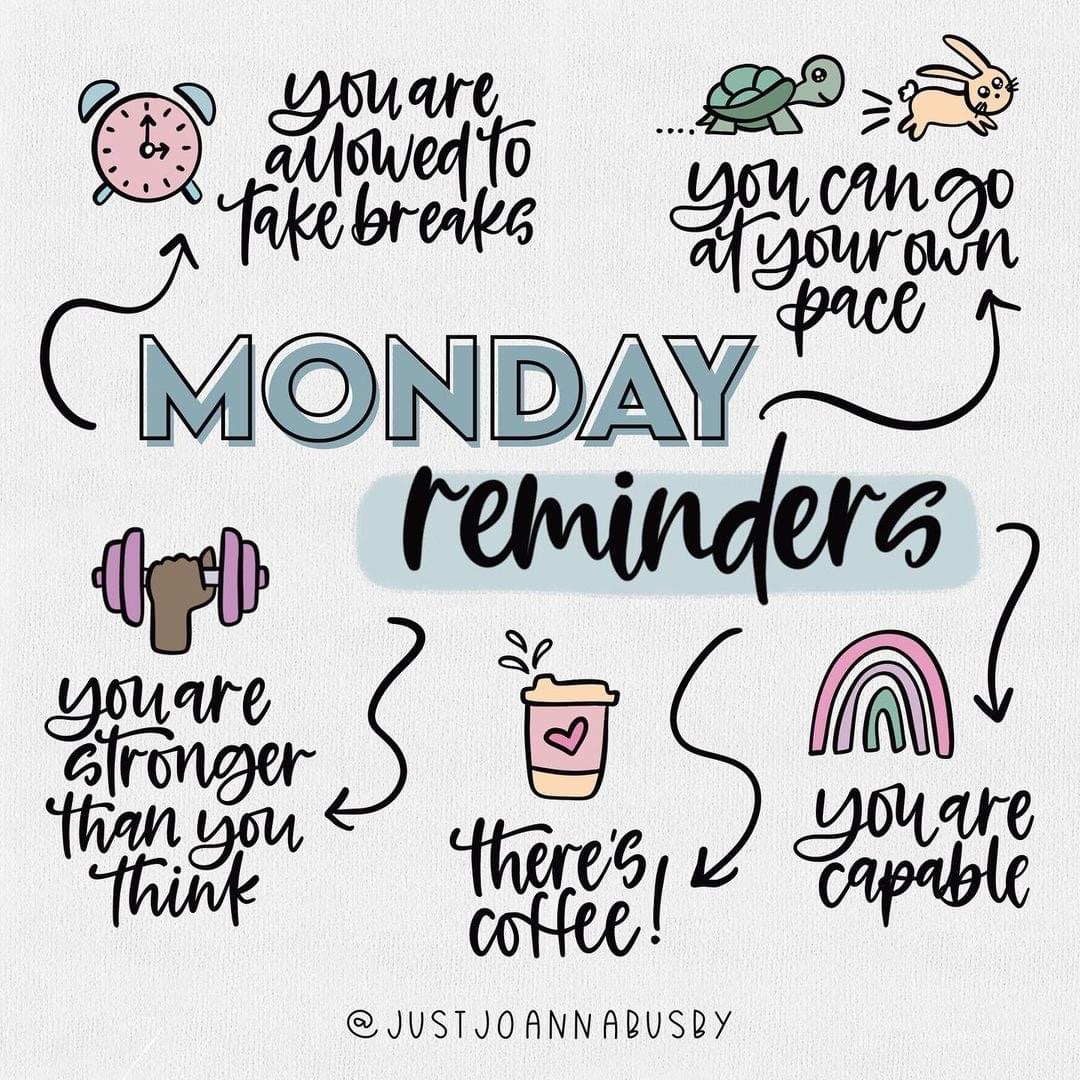 you are
allowed to
take breaks
you can go
at your own
pace
MONDAY
reminders
you are
stronger
than you
think
there's
coffee!
you are
capable
@JUSTJOANNABUSBY